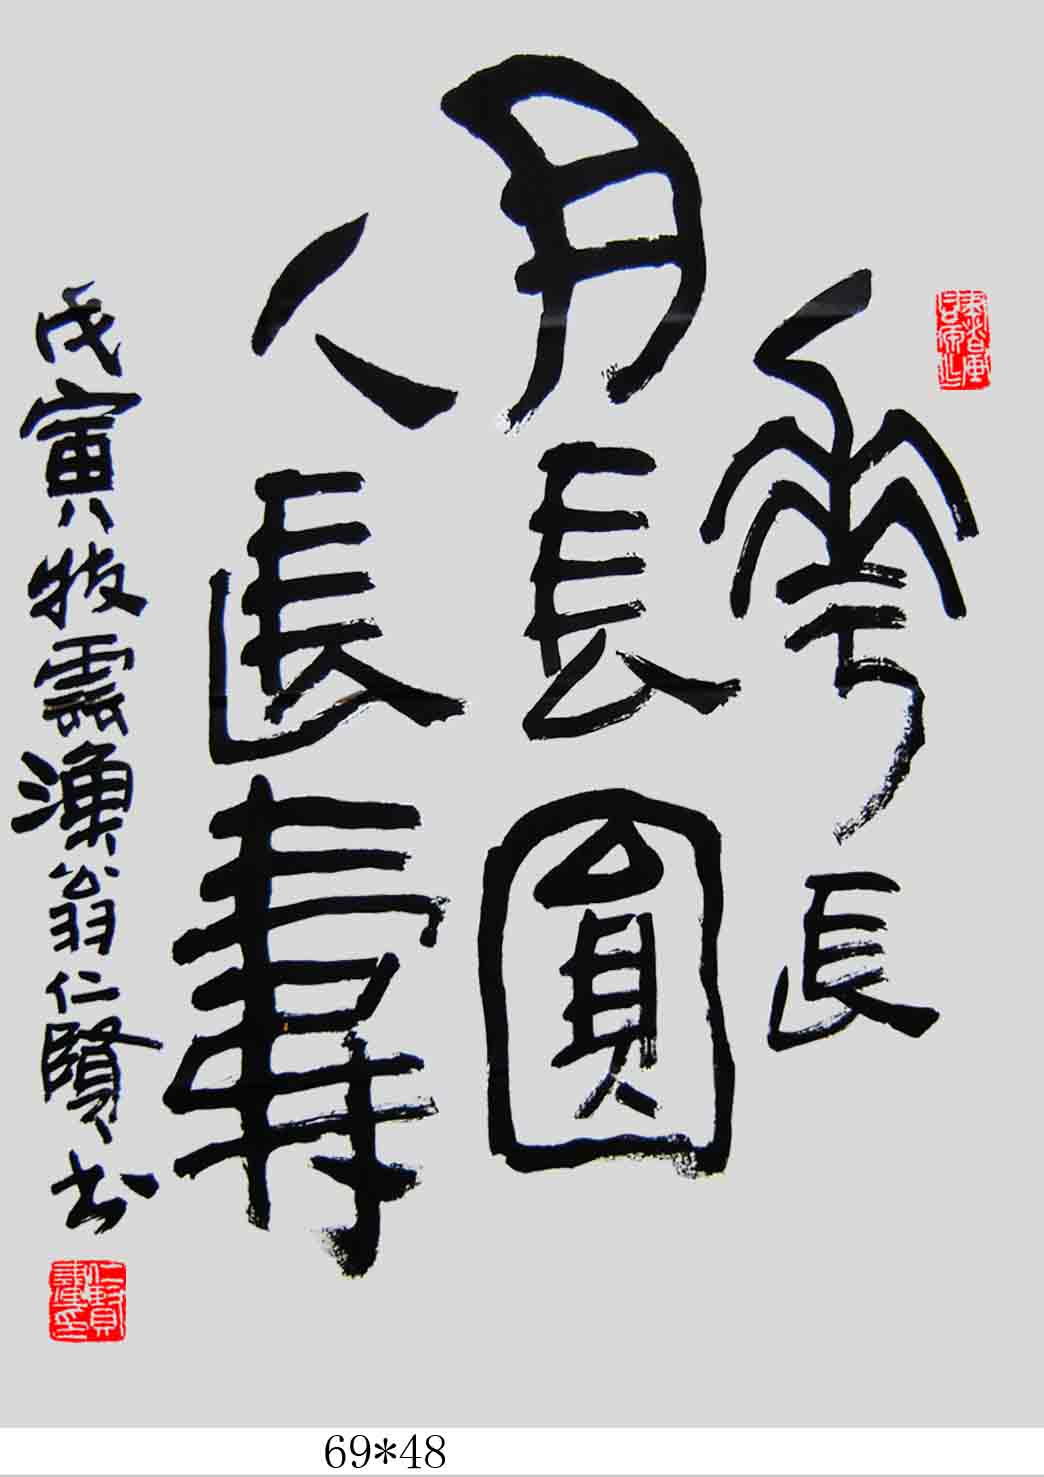 華長
月長圓
人長壽
戊寅牧雲漁翁仁賢书
69*48